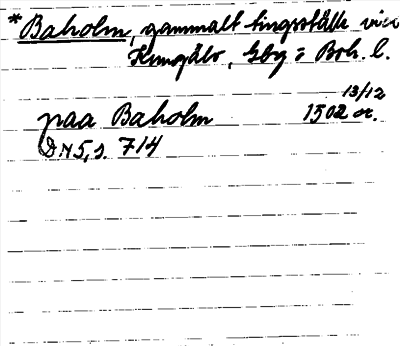 *Baholm, gammalt tingsställe vid
Kungälv, Gbg o Boh. l.
13/12
paa Baholm 1502 or.
DN 5, s. 714